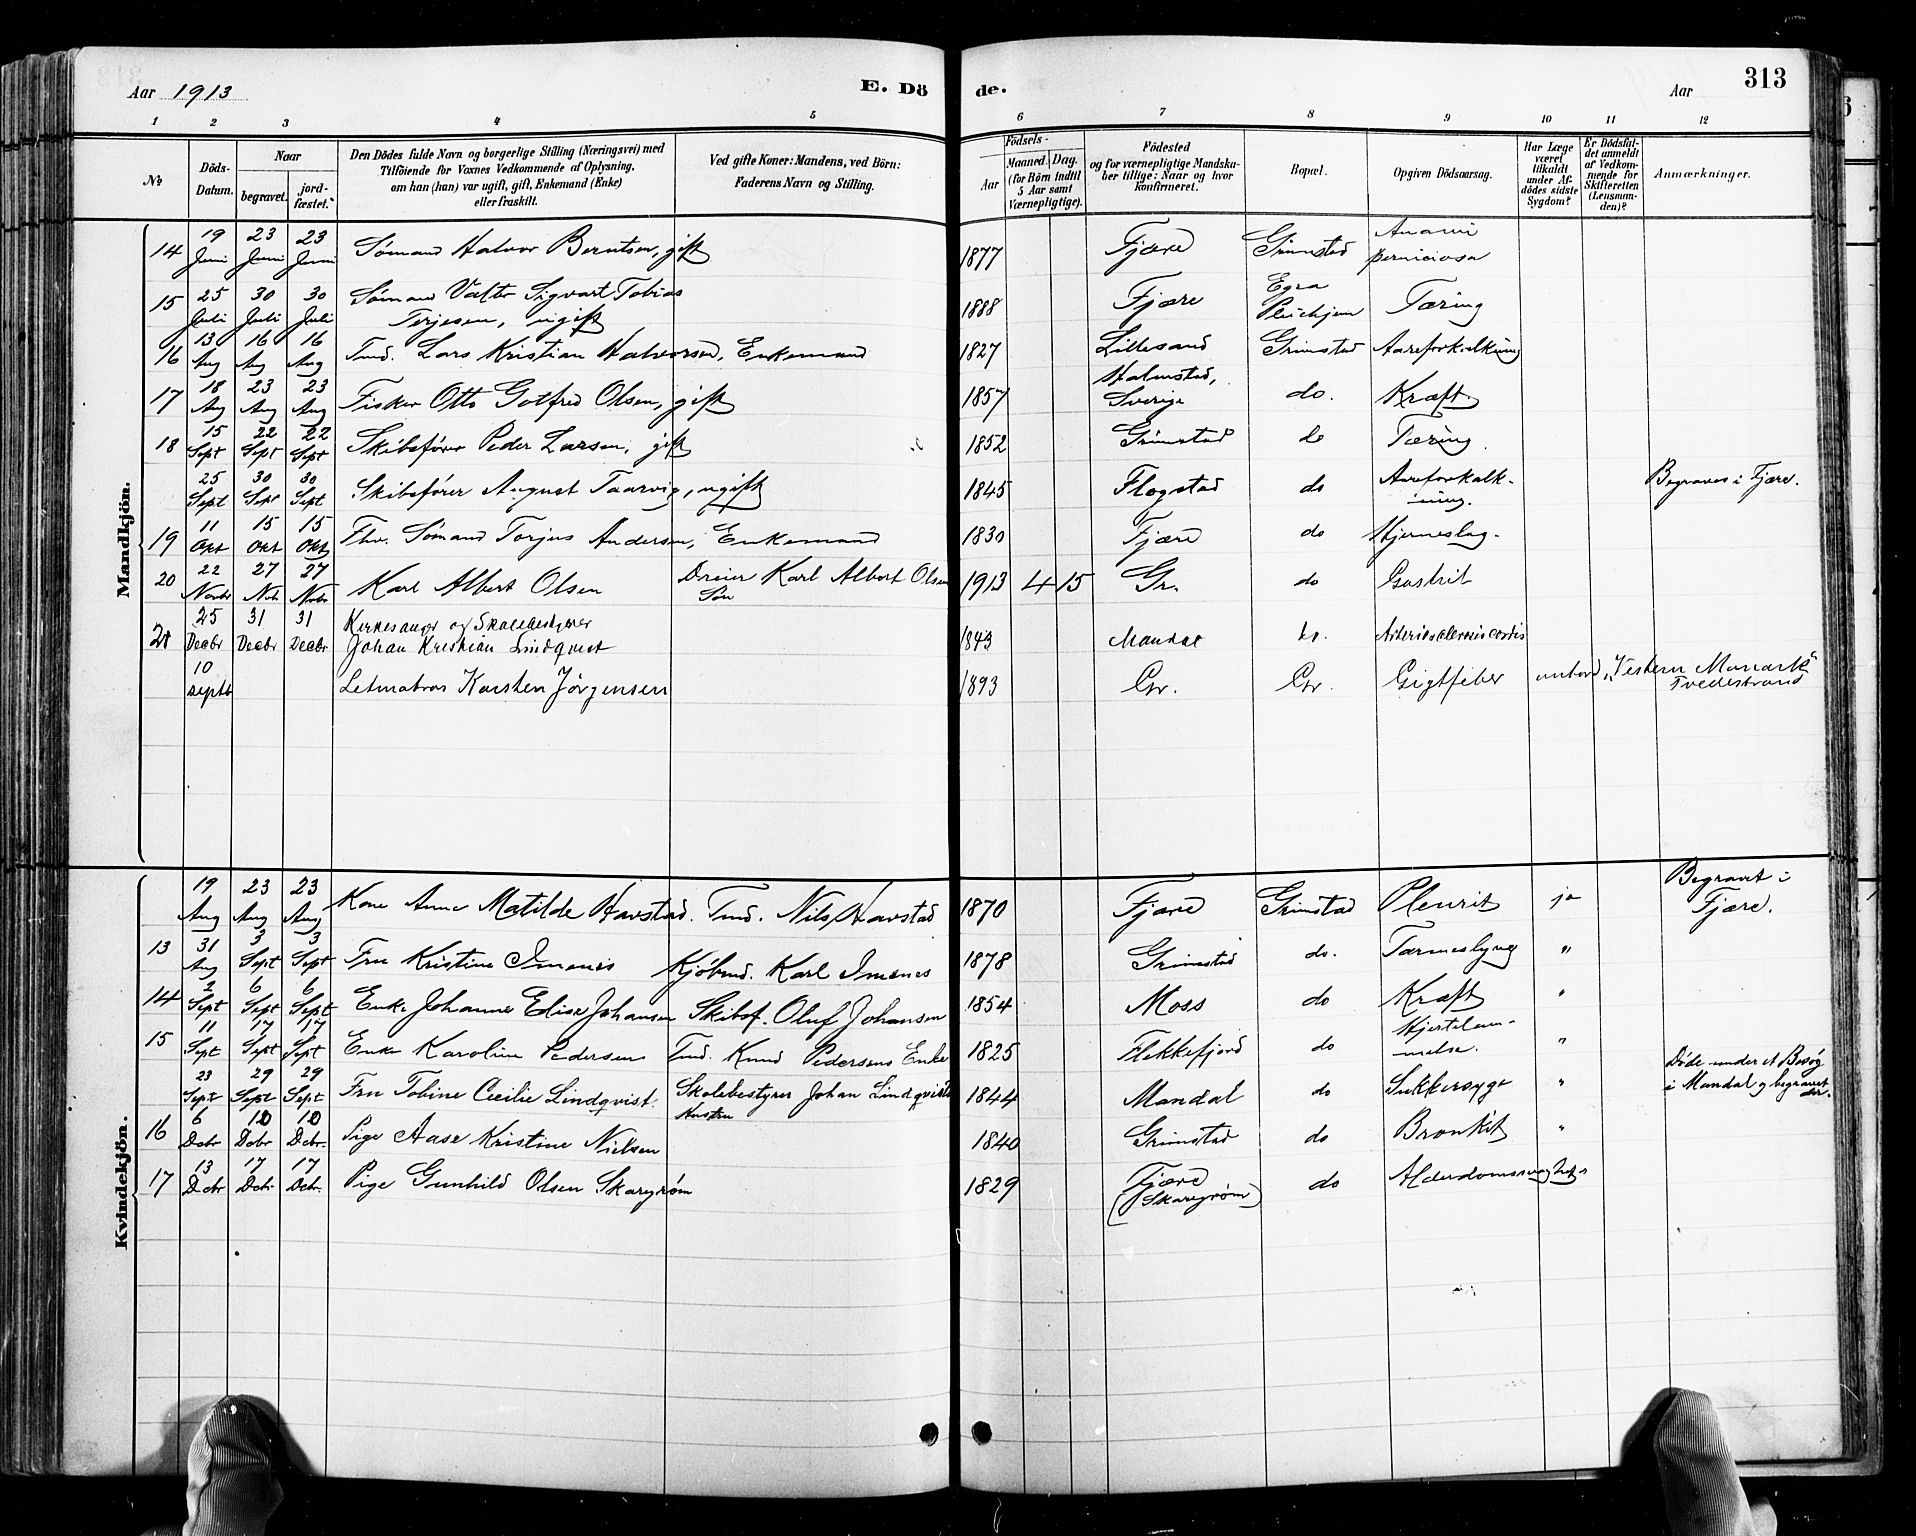 Aar 1913 E. Dö de. Aar 313
1 2 3 4 5 6 7 8 9 10 11 12
№ Döds-Datum. Naar begravet. jordfæstet. Den Dödes fulde Navn og borgerlige Stilling (Næringsvei) med Tilföiende for Voxnes Vedkommende af Oplysning, om han (hun) var ugift, gift, Enkemand (Enke) eller fraskilt. Ved gifte Koner: Mandens, ved Börn: Faderens Navn og Stilling. Födsels- Aar Maaned. Dag. (for Börn indtil 5 Aar samt Værnepligtige). Födested og for værnepligtige Mandskaber tillige: Naar og hvor konfirmeret. Bopæl. Opgiven Dödsaarsag. Har Læge været tilkaldt under Afdödes sidste Sygdom? Er Dödsfaldet anmeldt af Vedkommende for Skifteretten (Lensmanden)? Anmærkninger.
Mandkjön.
14 19 Juni 23 Juni 23 Juni Sømand Halvor Berntsen, gift 1877 Fjære Grimstad Anæmi perniciosa
15 25 Juli 30 Juli 30 Juli Sømand Valter Sigvart Tobias Terjesen, ugift 1888 Fjære Egra Pleiehjem Tæring
16 13 Aug 16 Aug 16 Aug Tmd. Lars Kristian Halvorsen, Enkemand 1827 Lillesand Grimstad Aareforkalkning
17 18 Aug 23 Aug 23 Aug Fisker Otto Gotfred Olsen, gift 1857 Halmstad, Sverige do. Kræft
18 15 Sept 22 Sept 22 Sept Skibsfører Peder Larsen, gift 1852 Grimstad do Tæring
25 Sept 30 Sept 30 Sept Skibsfører August Taarvig, ugift 1845 Flogstad do Aareforkalkning. Begraves i Fjære.
19 11 Okt 15 Okt 15 Okt Fhv. Sømand Torjus Andersen, Enkemand 1830 Fjære do Hjerneslag.
20 22 Novbr 27 Nvbr 27 Nvbr Karl Albert Olsen Dreier Karl Albert Olsen Søn 1913 4 15 Gr. do Gastrit
21 25 Decbr 31 Decbr 31 Decbr Kirkesanger og Skolebestyrer Johan Kristian Lindqvist 1843 Mandal do. Arteriosclerosis cordis
10 septb Letmatros Karsten Jörgensen 1893 Gr. Gr. Gigtfeber ombord "Vestern Monark" Tvedestrand
Kvindekjön.
19 Aug 23 Aug 23 Aug Kone Anne Matilde Havstad. Tmd. Nils Havstad 1870 Fjære Grimstad Pleurit ja Begravet i Fjære.
13 31 Aug 3 Sept 3 Sept Fru Kristine Imenes Kjøbmd. Karl Imenes 1878 Grimstad do. Tarmeslyng "
14 2 Sept 6 Sept 6 Sept Enke Johanne Elise Johansen Skibsf. Oluf Johansen 1854 Moss do Kræft "
15 11 Sept 17 Sept 17 Sept Enke Karoline Pedersen Tmd. Knud Pedersens Enke 1825 Flekkefjord do Hjertelammelse. "
23 Sept 29 Sept 29 Sept Fru Tobine Cecilie Lindqvist. Skolebestyrer Johan Lindqvists Hustru 1844 Mandal do Sukkersyge " Døde under et Besøg i Mandal og begravet der.
16 6 Dcbr 10 Dcbr 10 Dcbr. Pige Aase Kristine Nielsen 1840 Grimstad do Bronkit "
17 13 Dcbr 17 Dcbr 17 Dcbr. Pige Gunhild Olsen Skaregrøm 1829 Fjære (Skaregrøm) do Alderdomssvaghet "